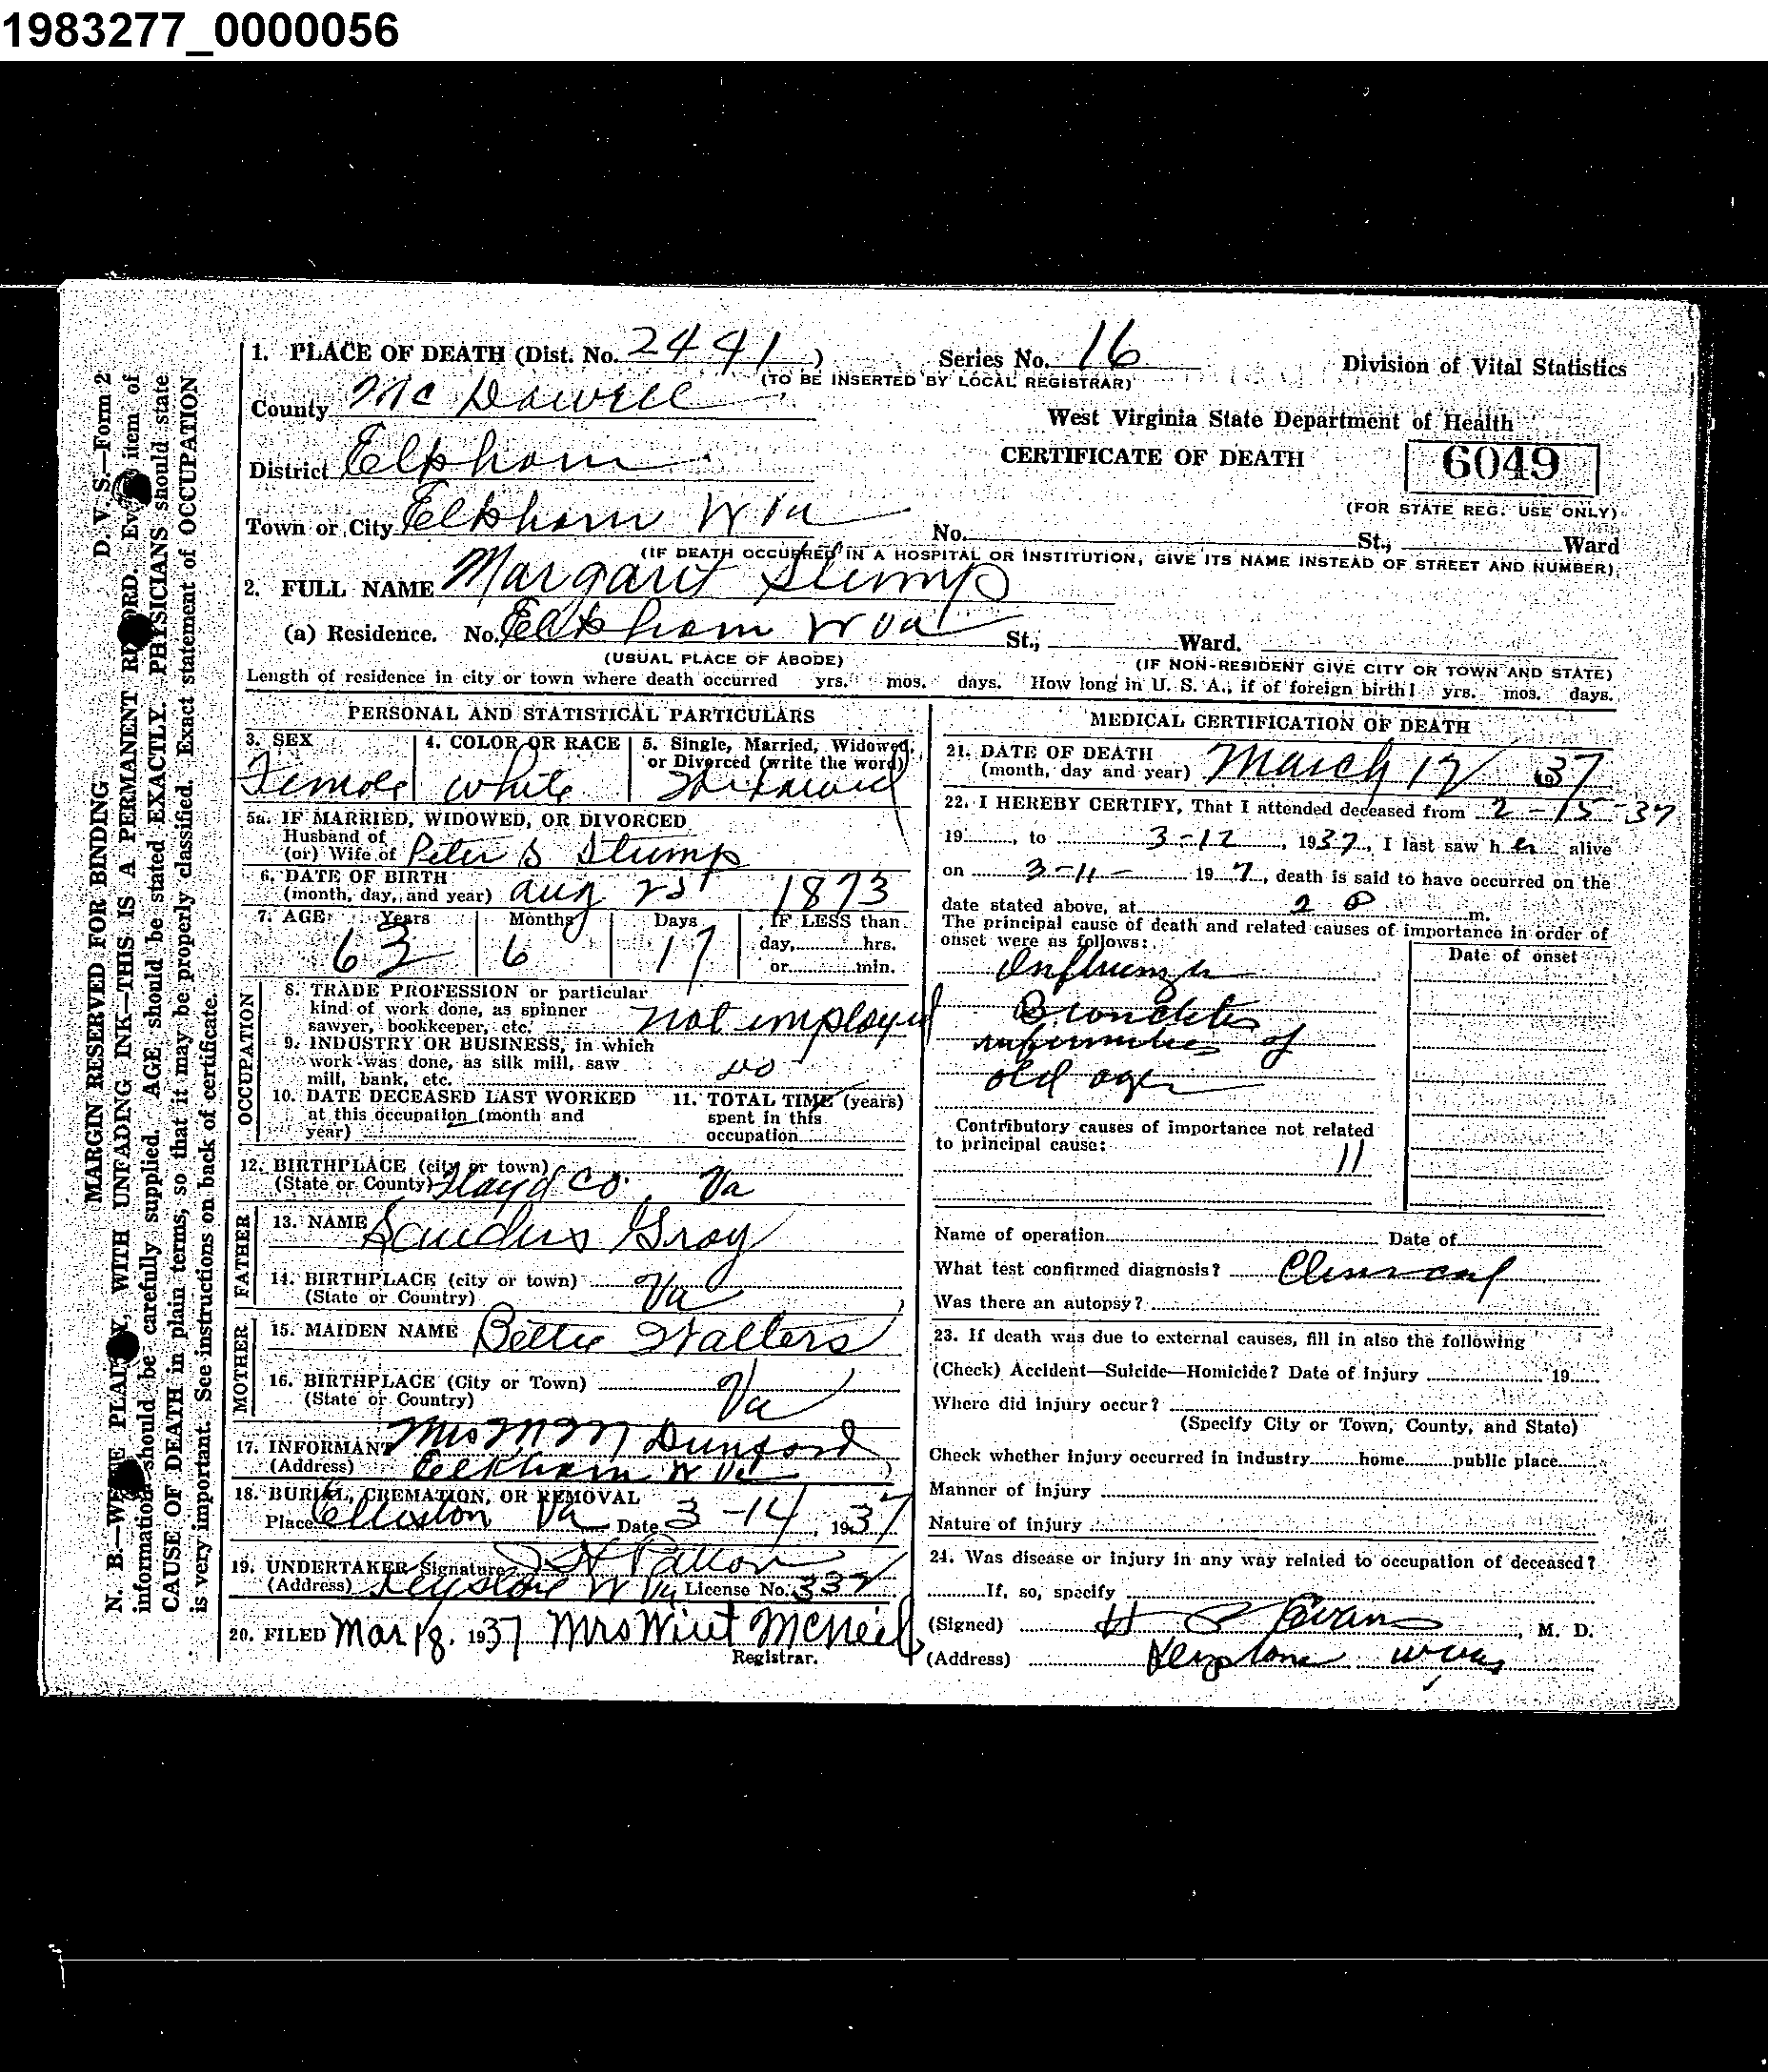 1983277_0000056
1. PLACE OF DEATH (Dist. No. 2441) Series No. 16 Division of Vital Statistics
(TO BE INSERTED BY LOCAL REGISTRAR)
County McDowell
West Virginia State Department of Health
District Elkhorn
CERTIFICATE OF DEATH 6049
(FOR STATE REG. USE ONLY)
Town or City Elkhorn W Va No. St., Ward
(IF DEATH OCCURRED IN A HOSPITAL OR INSTITUTION, GIVE ITS NAME INSTEAD OF STREET AND NUMBER)
2. FULL NAME Margaret Stump
(a) Residence. No. Elkhorn W Va St., Ward.
(USUAL PLACE OF ABODE) (IF NON-RESIDENT GIVE CITY OR TOWN AND STATE)
Length of residence in city or town where death occurred yrs. mos. days. How long in U. S. A., if of foreign birth? yrs. mos. days.
PERSONAL AND STATISTICAL PARTICULARS
3. SEX 4. COLOR OR RACE 5. Single, Married, Widowed, or Divorced (write the word)
Female white Widowed
5a. IF MARRIED, WIDOWED, OR DIVORCED
Husband of
(or) Wife of Peter S Stump
6. DATE OF BIRTH
(month, day, and year) Aug 1873
7. AGE Years Months Days IF LESS than
63 6 17 day, hrs.
or min.
OCCUPATION
8. TRADE PROFESSION or particular
kind of work done, as spinner
sawyer, bookkeeper, etc. not employed
9. INDUSTRY OR BUSINESS, in which
work was done, as silk mill, saw
mill, bank, etc. no
10. DATE DECEASED LAST WORKED 11. TOTAL TIME (years)
at this occupation (month and spent in this
year) occupation
12. BIRTHPLACE (city or town)
(State or County) Floyd Co. Va
FATHER
13. NAME Saudus Gray
14. BIRTHPLACE (city or town)
(State or Country) Va
MOTHER
15. MAIDEN NAME Bettie Walters
16. BIRTHPLACE (City or Town)
(State or Country) Va
17. INFORMANT Mrs M M Dunford
(Address) Elkhorn W Va
18. BURIAL, CREMATION, OR REMOVAL
Place Elliston Va Date 3-14, 1937
19. UNDERTAKER Signature
(Address) Keystone W Va License No. 332
20. FILED Mar 18, 1937 Mrs Wirt McNeil
Registrar.
MEDICAL CERTIFICATION OF DEATH
21. DATE OF DEATH
(month, day and year) March 12 37
22. I HEREBY CERTIFY, That I attended deceased from 2-15-37
19 , to 3-12, 1937, I last saw her alive
on 3-11- 197, death is said to have occurred on the
date stated above, at m.
The principal cause of death and related causes of importance in order of
onset were as follows: Date of onset
Influenza
Bronchitis
infirmities of
old age
Contributory causes of importance not related
to principal cause: 11
Name of operation Date of
What test confirmed diagnosis? Clinical
Was there an autopsy?
23. If death was due to external causes, fill in also the following
(Check) Accident—Suicide—Homicide? Date of injury 19
Where did injury occur?
(Specify City or Town, County, and State)
Check whether injury occurred in industry home public place
Manner of injury
Nature of injury
24. Was disease or injury in any way related to occupation of deceased?
If, so, specify
(Signed) H Evans, M. D.
(Address) Keystone W Va
MARGIN RESERVED FOR BINDING D. V. S.—Form 2
N. B.—WRITE PLAINLY, WITH UNFADING INK—THIS IS A PERMANENT RECORD. Every item of
information should be carefully supplied. AGE should be stated EXACTLY. PHYSICIANS should state
CAUSE OF DEATH in plain terms, so that it may be properly classified. Exact statement of OCCUPATION
is very important. See instructions on back of certificate.